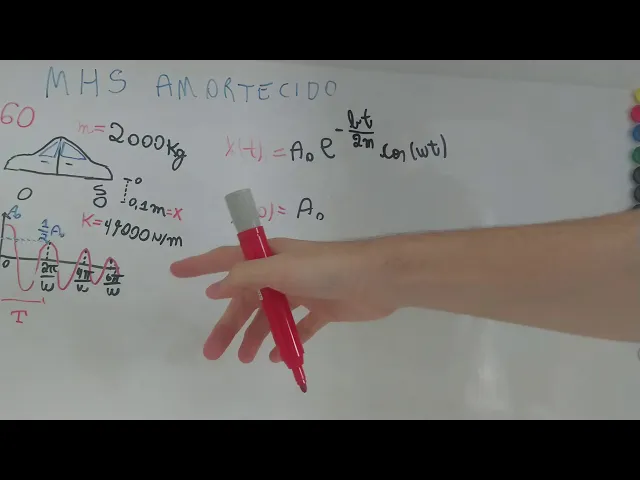 MHS AMORTECIDO
60
m = 2000Kg
x(t) = A₀ e^(-bt/2m) cos(wt)
0
0,1m = x
K = 49000N/m
A₀
1/2 A₀
0) = A₀
0
2π/w 4π/w 6π/w
T